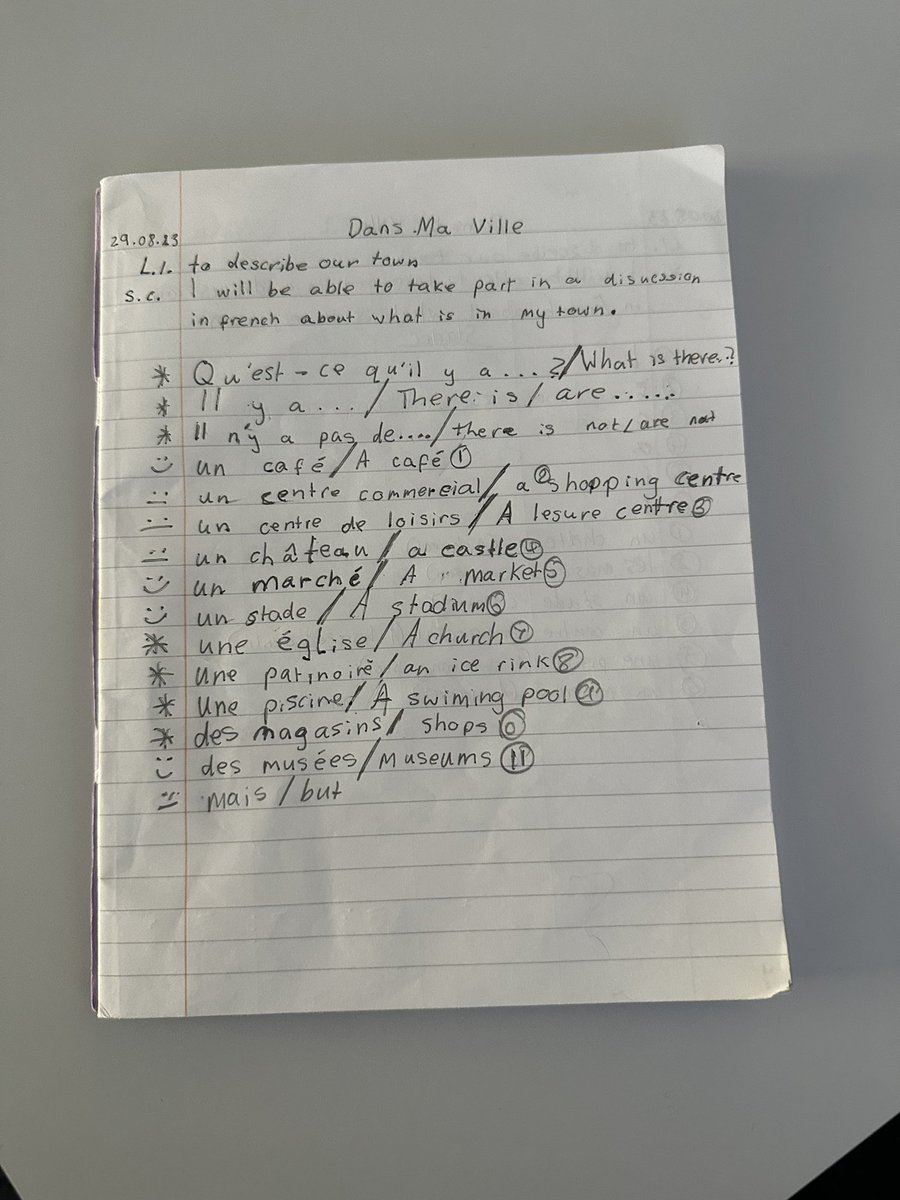 Dans Ma Ville
29.08.23
L.I. to describe our town
S.C. I will be able to take part in a disucssion
in french about what is in my town.
* Qu'est-ce qu'il y a...?/What is there..?
* Il y a.../There is/are......
* Il n'y a pas de..../there is not/are not
un café/A café ①
un centre commercial/a ② shopping centre
un centre de loisirs/A lesure centre ③
un château/a castle ④
un marché/A market ⑤
un stade/A stadium ⑥
* une église/A church ⑦
* une patinoire/an ice rink ⑧
* une piscine/A swiming pool ⑨
* des magasins/shops ⑩
des musées/museums ⑪
mais/but